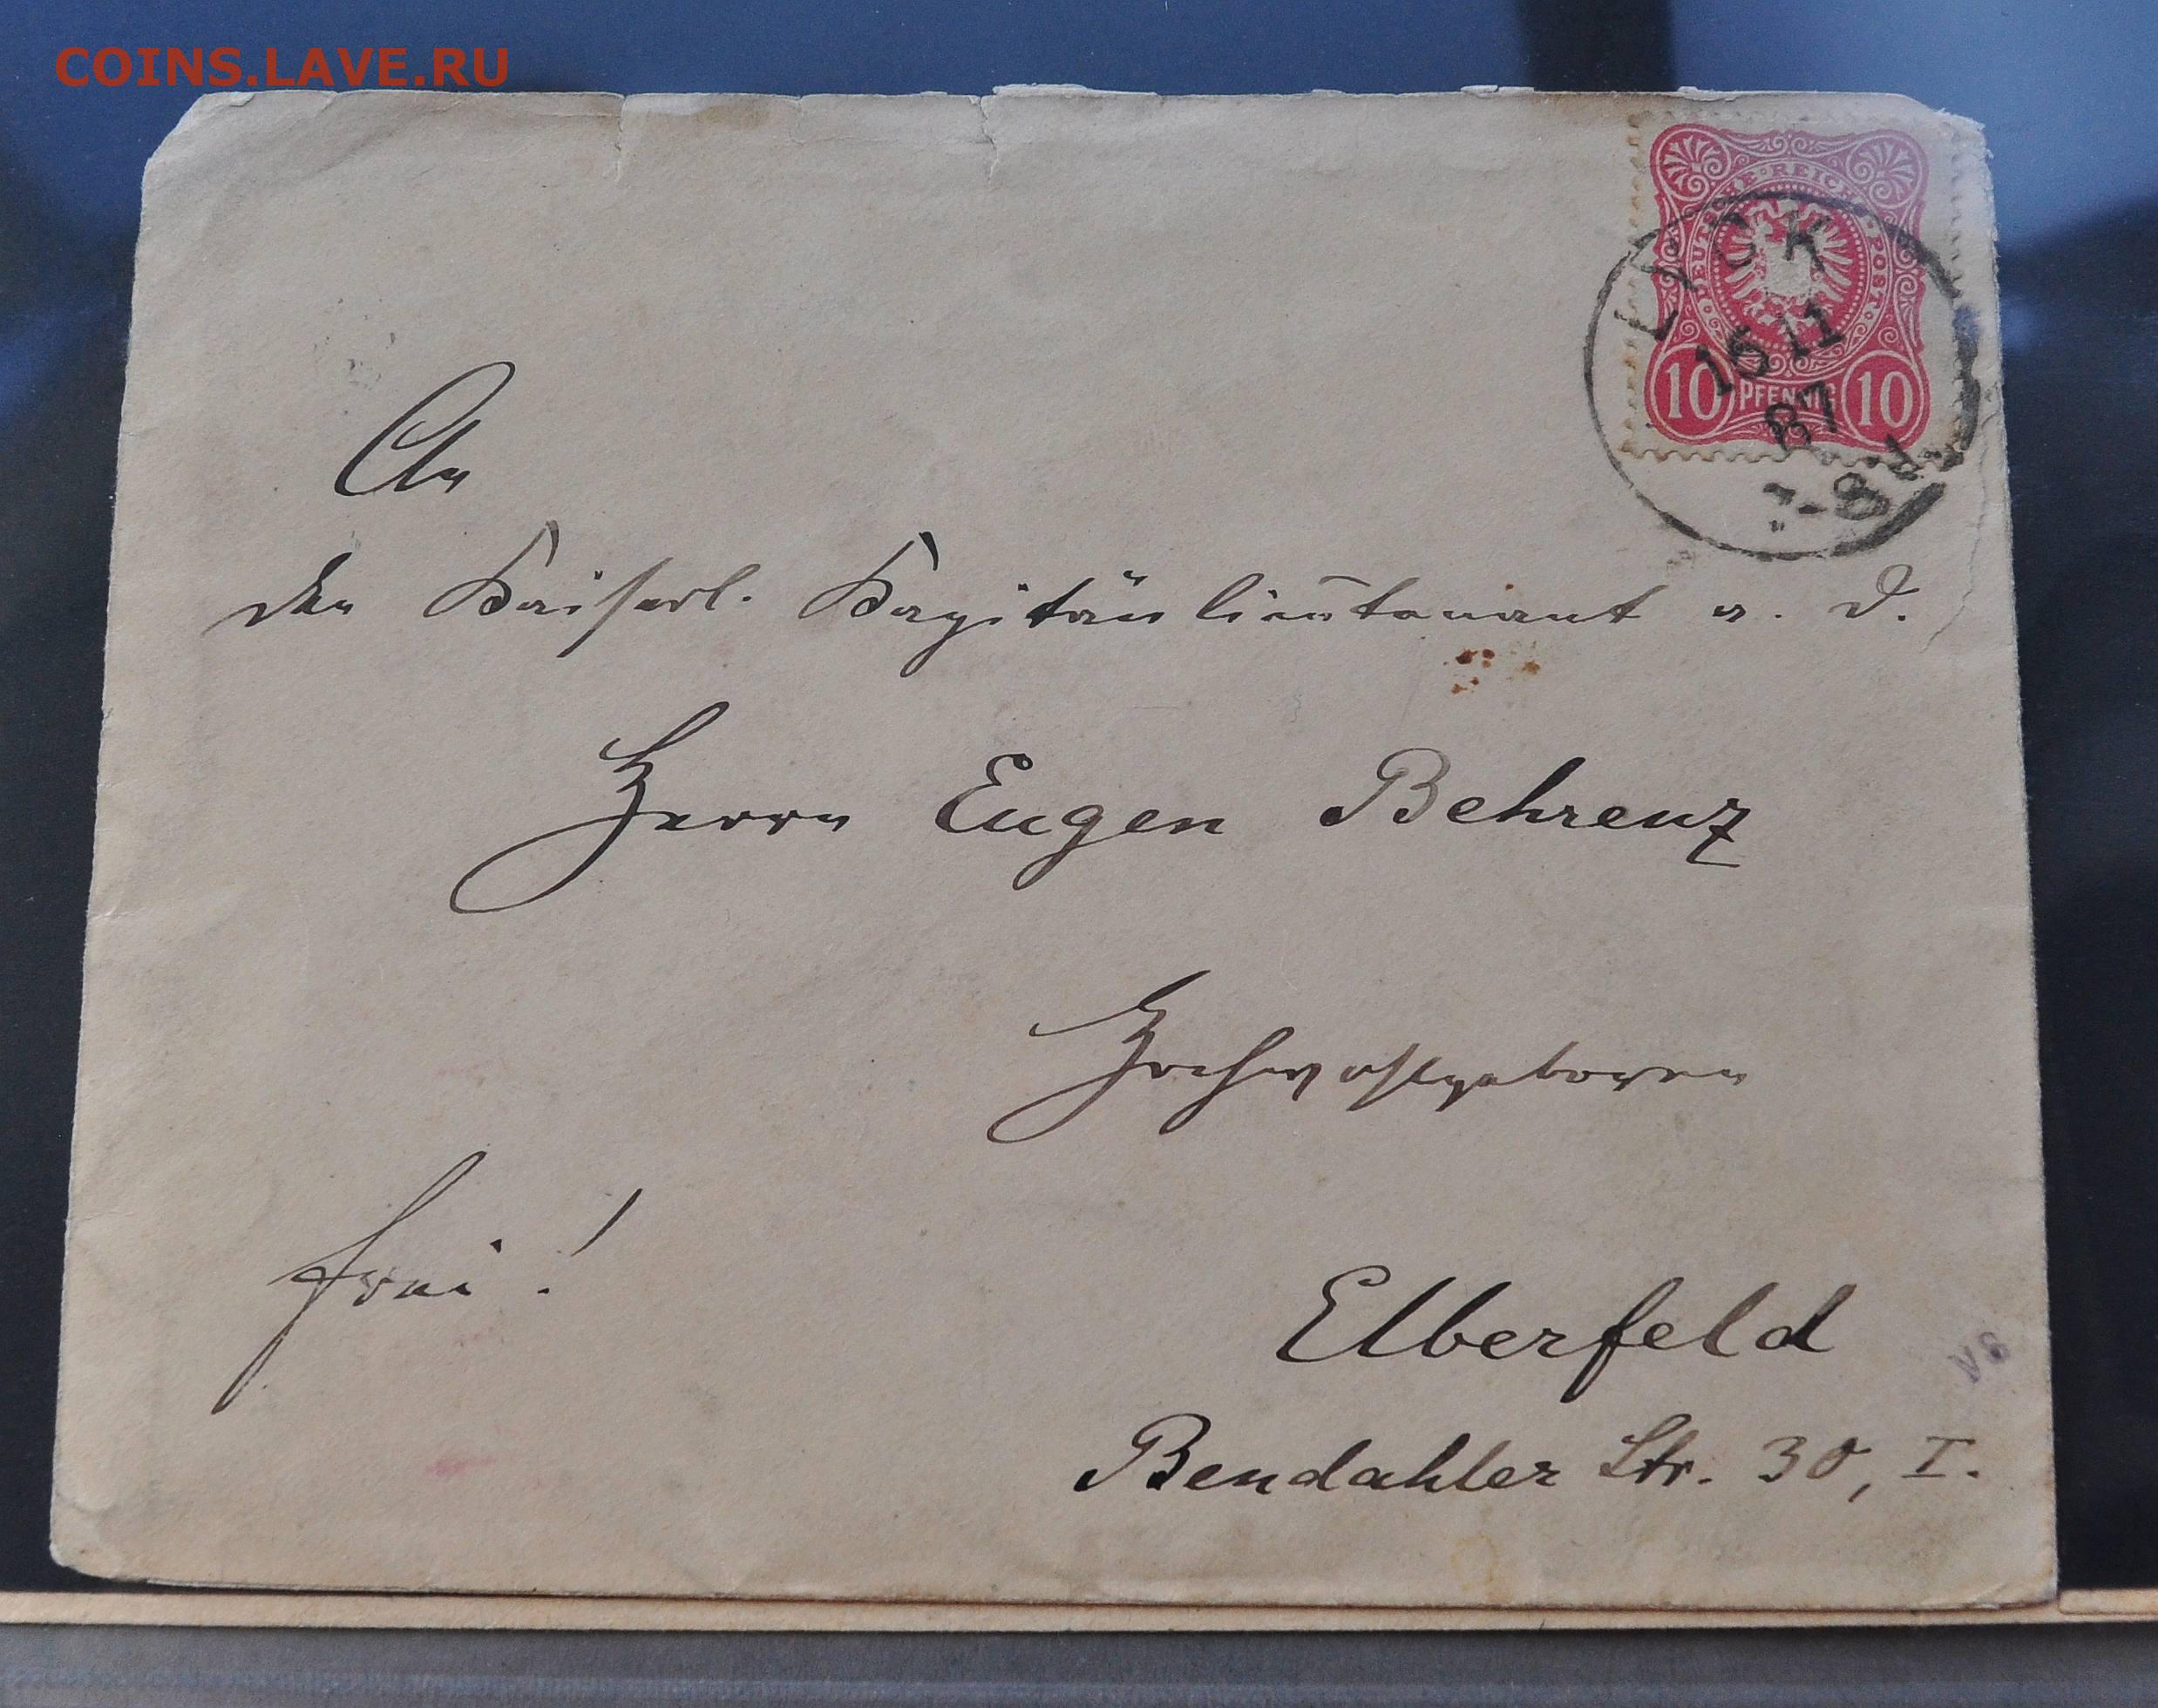 COINS.LAVE.RU
DEUTSCHE · REICHS-POST
LYCK
16 11
87
7-8 N
10 PFENNIG 10
An
den Kaiserl. Kapitänlieutenant a. D.
Herrn Eugen Behrenz
Hochwohlgeboren
frei!
Elberfeld
Bendahler Str. 30, I.